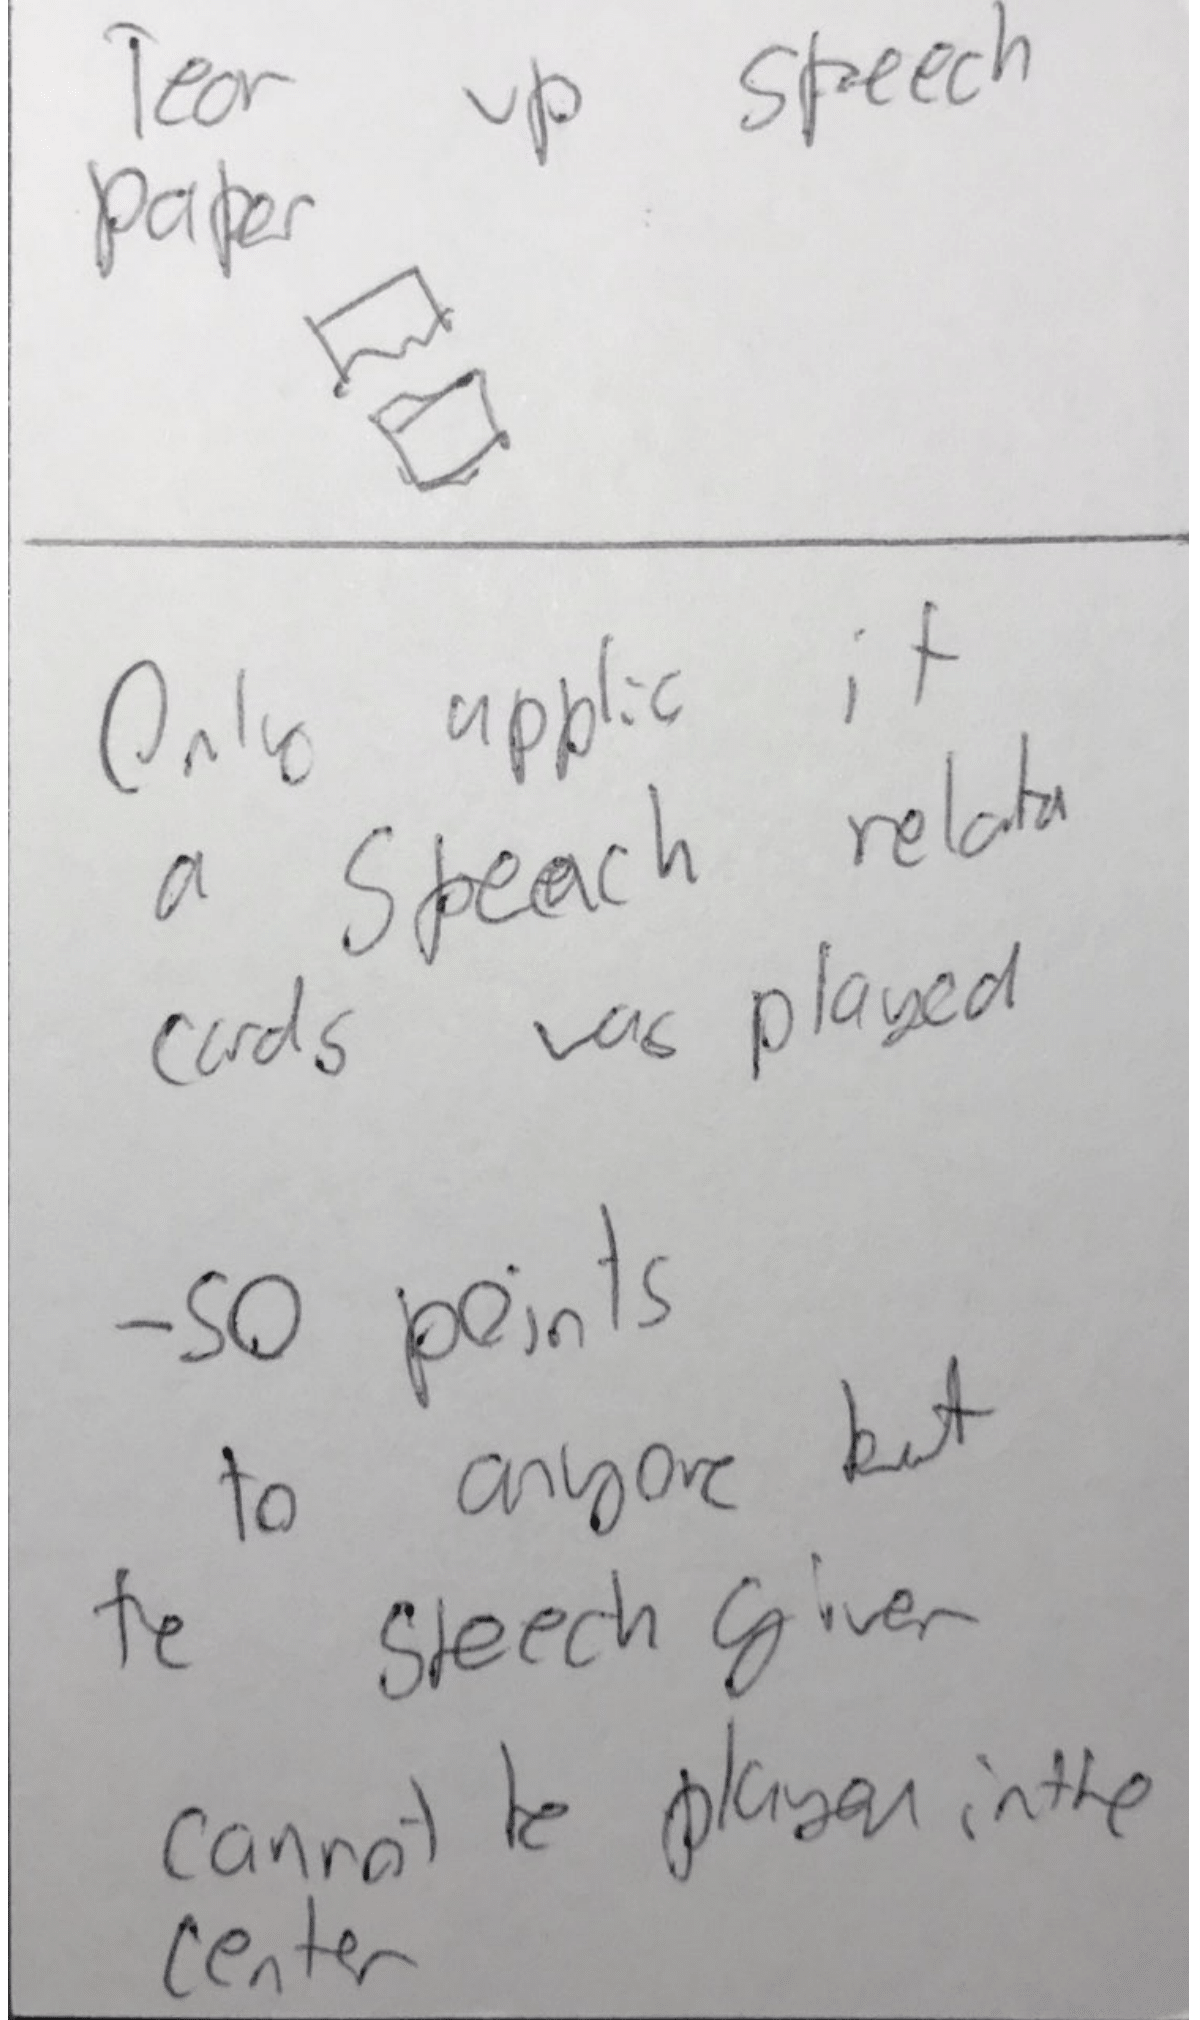 Tear up speech
paper
Only applic if
a Speeach relata
cards was played
-50 points
to anyone but
te speech giver
cannot be played in the
center